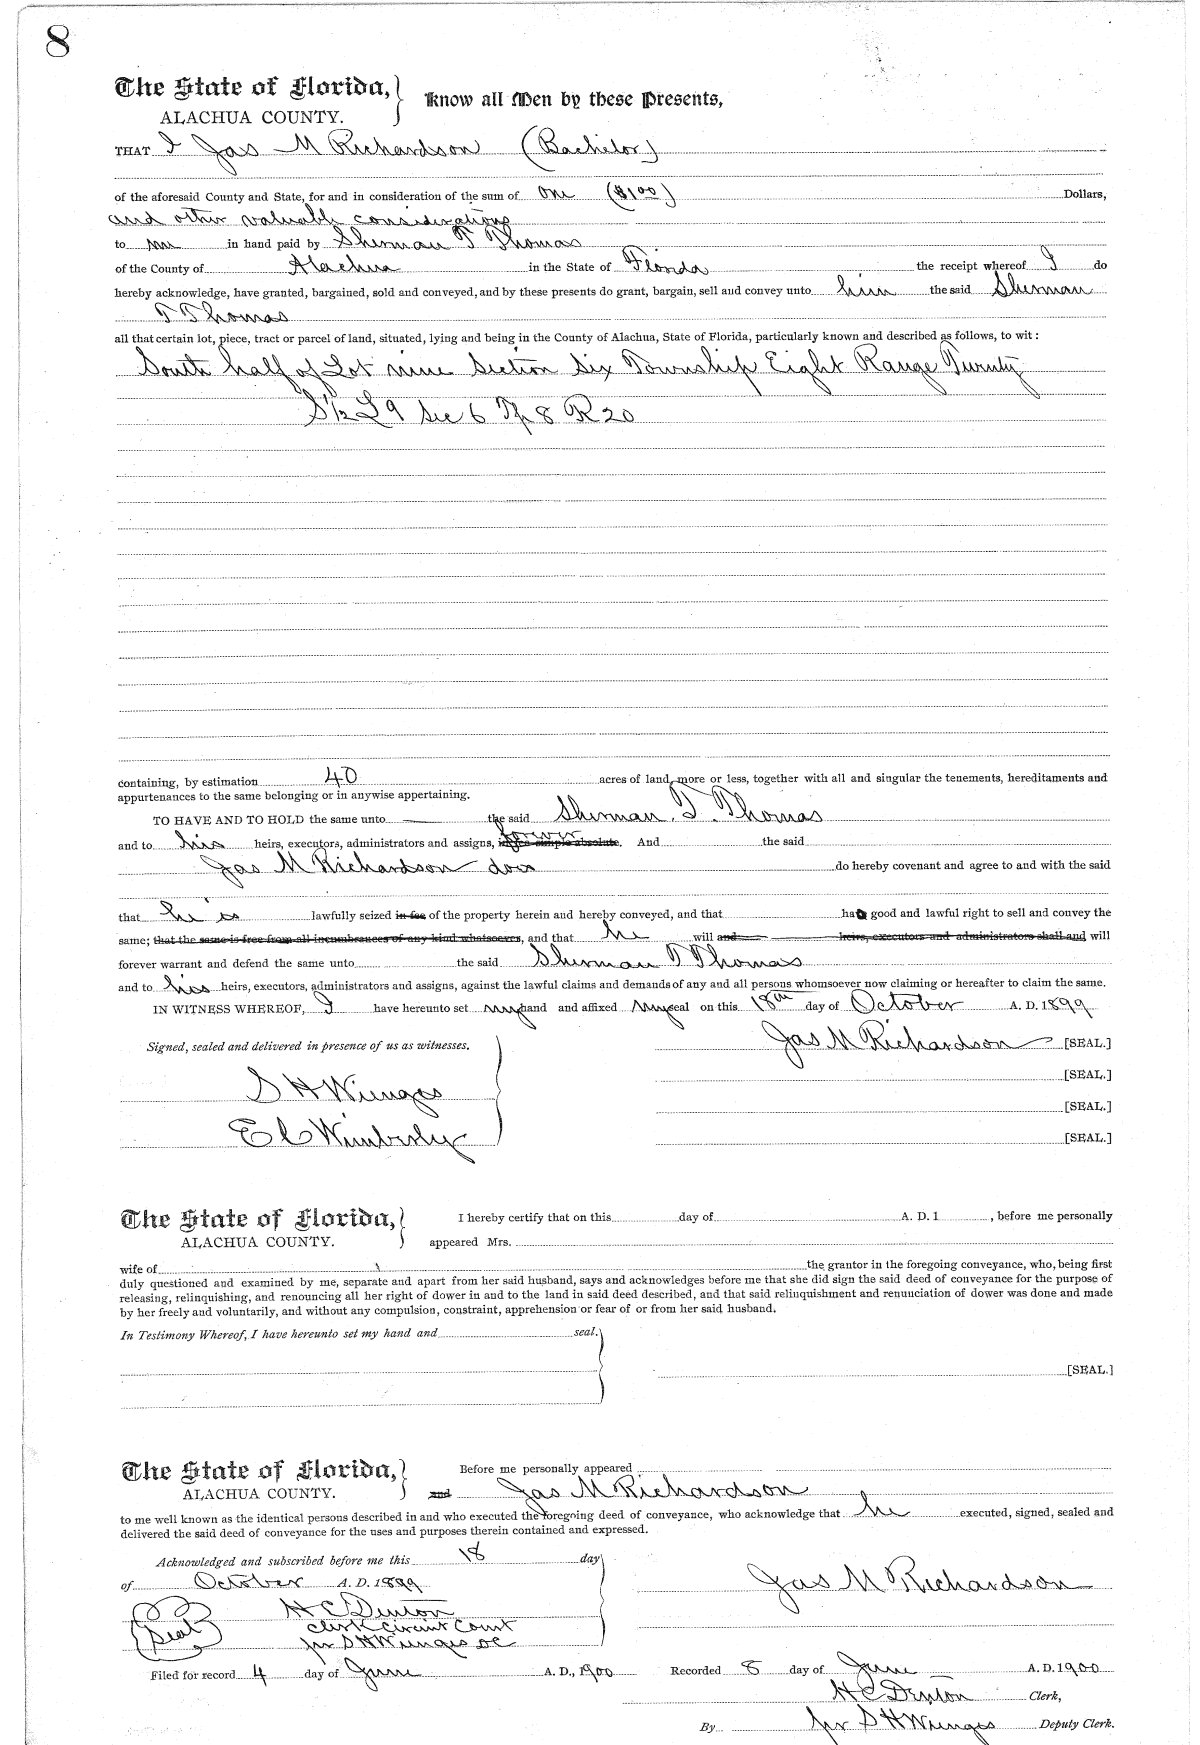 8
The State of Florida, } Know all Men by these Presents,
ALACHUA COUNTY.
THAT I Jas M Richardson (Bachelor)
of the aforesaid County and State, for and in consideration of the sum of one ($1.00) Dollars,
and other valuable considerations
to me in hand paid by Sherman T Thomas
of the County of Alachua in the State of Florida the receipt whereof I do
hereby acknowledge, have granted, bargained, sold and conveyed, and by these presents do grant, bargain, sell and convey unto him the said Sherman
T Thomas
all that certain lot, piece, tract or parcel of land, situated, lying and being in the County of Alachua, State of Florida, particularly known and described as follows, to wit:
South half of Lot nine Section Six Township Eight Range Twenty
S 1/2 L 9 Sec 6 Tp 8 R 20
containing, by estimation 40 acres of land, more or less, together with all and singular the tenements, hereditaments and
appurtenances to the same belonging or in anywise appertaining.
TO HAVE AND TO HOLD the same unto the said Sherman T. Thomas
and to his heirs, executors, administrators and assigns, in fee simple absolute. forever And the said
Jas M Richardson does do hereby covenant and agree to and with the said
that he is lawfully seized in fee of the property herein and hereby conveyed, and that has good and lawful right to sell and convey the
same; that the same is free from all incumbrances of any kind whatsoever, and that he will and heirs, executors and administrators shall and will
forever warrant and defend the same unto the said Sherman T Thomas
and to his heirs, executors, administrators and assigns, against the lawful claims and demands of any and all persons whomsoever now claiming or hereafter to claim the same.
IN WITNESS WHEREOF, I have hereunto set my hand and affixed my seal on this 18th day of October A. D. 1899
Signed, sealed and delivered in presence of us as witnesses. Jas M Richardson [SEAL.]
[SEAL.]
S H Wienges [SEAL.]
E C Wimberly [SEAL.]
The State of Florida, } I hereby certify that on this day of A. D. 1 , before me personally
ALACHUA COUNTY. appeared Mrs.
wife of the grantor in the foregoing conveyance, who, being first
duly questioned and examined by me, separate and apart from her said husband, says and acknowledges before me that she did sign the said deed of conveyance for the purpose of
releasing, relinquishing, and renouncing all her right of dower in and to the land in said deed described, and that said relinquishment and renunciation of dower was done and made
by her freely and voluntarily, and without any compulsion, constraint, apprehension or fear of or from her said husband.
In Testimony Whereof, I have hereunto set my hand and seal.
[SEAL.]
The State of Florida, } Before me personally appeared
ALACHUA COUNTY. and Jas M Richardson
to me well known as the identical persons described in and who executed the foregoing deed of conveyance, who acknowledge that he executed, signed, sealed and
delivered the said deed of conveyance for the uses and purposes therein contained and expressed.
Acknowledged and subscribed before me this 18 day
of October A. D. 1899 Jas M Richardson
H C Denton
Seal Clerk Circuit Court
per S H Wienges DC
Filed for record 4 day of June A. D., 1900 Recorded 8 day of June A. D. 1900
H C Denton Clerk,
By per S H Wienges Deputy Clerk.